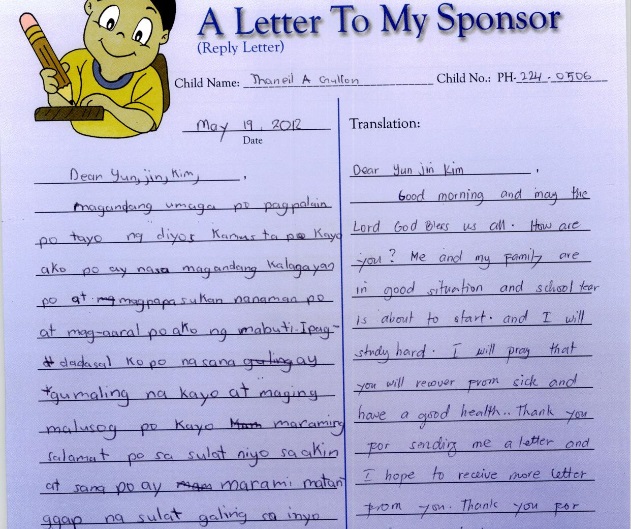 A Letter To My Sponsor
(Reply Letter)
Child Name: Thaneil A Gullon Child No.: PH-224-0506
May 19, 2012
Date
Dear Yun, jin, Kim,,
magandang umaga po pagpalain
po tayo ng diyos Kamusta po Kayo
ako po ay nasa magandang Kalagayan
po at magpapasukan nanaman po
at mag-aaral po ako ng mabuti. Ipag-
dadasal Ko po na sana ay
gumaling na kayo at maging
malusog po Kayo maraming
salamat po sa sulat niyo sa akin
at sana po ay marami matan
ggap na sulat galing sa inyo
Translation:
Dear Yun jin Kim,
Good morning and may the
Lord God Bless us all. How are
you? Me and my family are
in good situation and school tear
is about to start. and I will
study hard. I will pray that
you will recover from sick and
have a good health.. Thank you
for sending me a letter and
I hope to receive more letter
from you. Thank you for